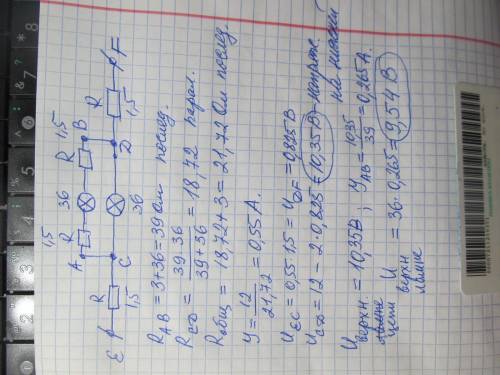 1,5 36 1,5
A R R B
E R C 36 D R F
1,5 1,5
R_AB = 3+36 = 39 Ом посл.
R_CD = 39·36 / 39+36 = 18,72 парал.
R общ = 18,72 + 3 = 21,72 Ом послед.
У = 12 / 21,72 = 0,55 А.
U_EC = 0,55·1,5 = U_DF = 0,825 В
U_CD = 12 − 2·0,825 = 10,35 В - напряж.
на нижней
U верхн. цепи = 10,35 В ; У_AB = 10,35 / 39 = 0,265 А.
лампе
U верхн лампе = 36·0,265 = 9,54 В